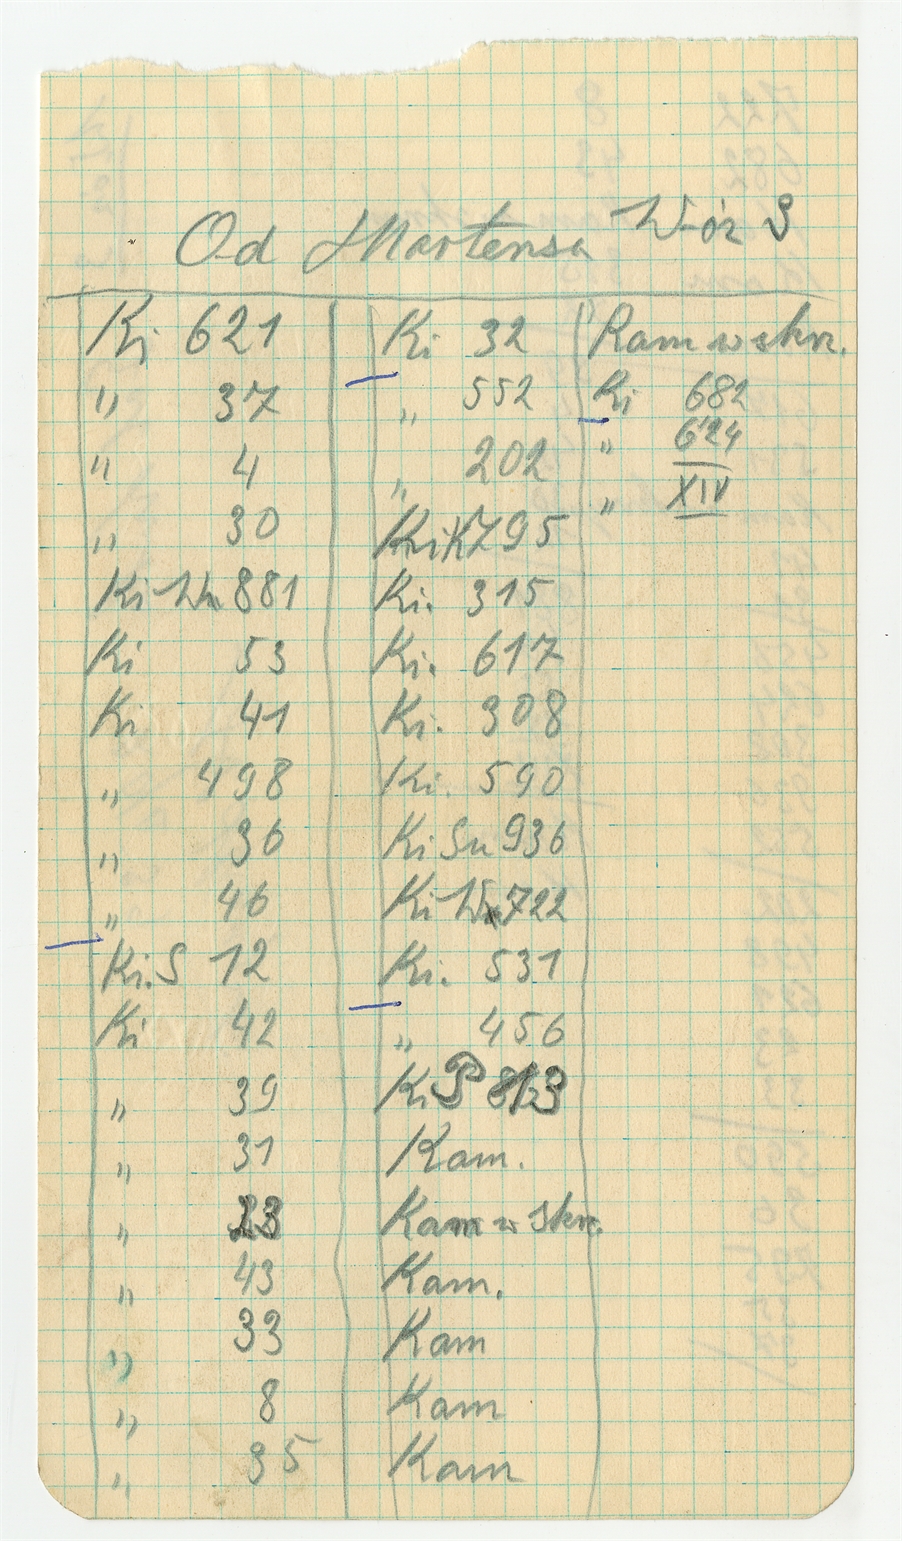 Od Martensa W-óz 3
Ki 621
" 37
" 4
" 30
Ki Wn 881
Ki 53
Ki 41
" 498
" 36
" 46
Ki.S 12
Ki 42
" 39
" 31
" 23
" 43
" 33
" 8
" 35
Ki 32
" 552
" 202
795
Ki. 315
Ki. 617
Ki. 308
Ki. 590
Ki Sn 936
Ki Wn 722
Ki. 531
" 456
Ki P 813
Kam.
Kam w Skrz.
Kam.
Kam
Kam
Kam
Kam w skrz.
Ki 682
" 624
" XIV